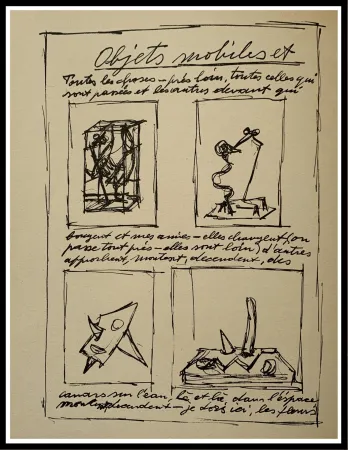 Objets mobiles et
Toutes les choses - près, loin, toutes celles qui
sont passées et les autres devant qui
bougent et mes amies - elles changent (on
passe tout près - elles sont loin) d'autres
approchent, montent, descendent, des
canards sur l'eau, là et là, dans l'espace
montent descendent - je dors ici, les fleurs